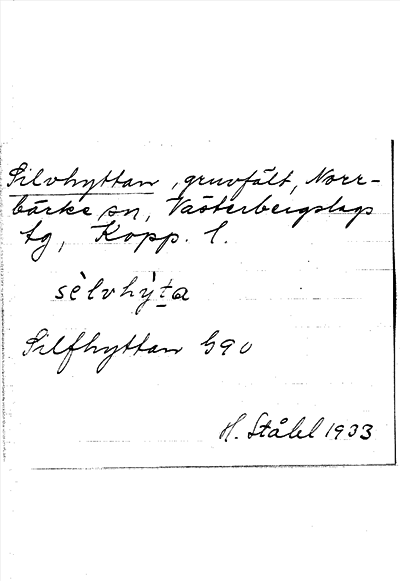 Silvhyttan, gruvfält, Norr-
bärke sn, Västerbergslags
tg, Kopp. l.
sèlvhỳta
Silfhyttan G90
H. Ståhl 1933